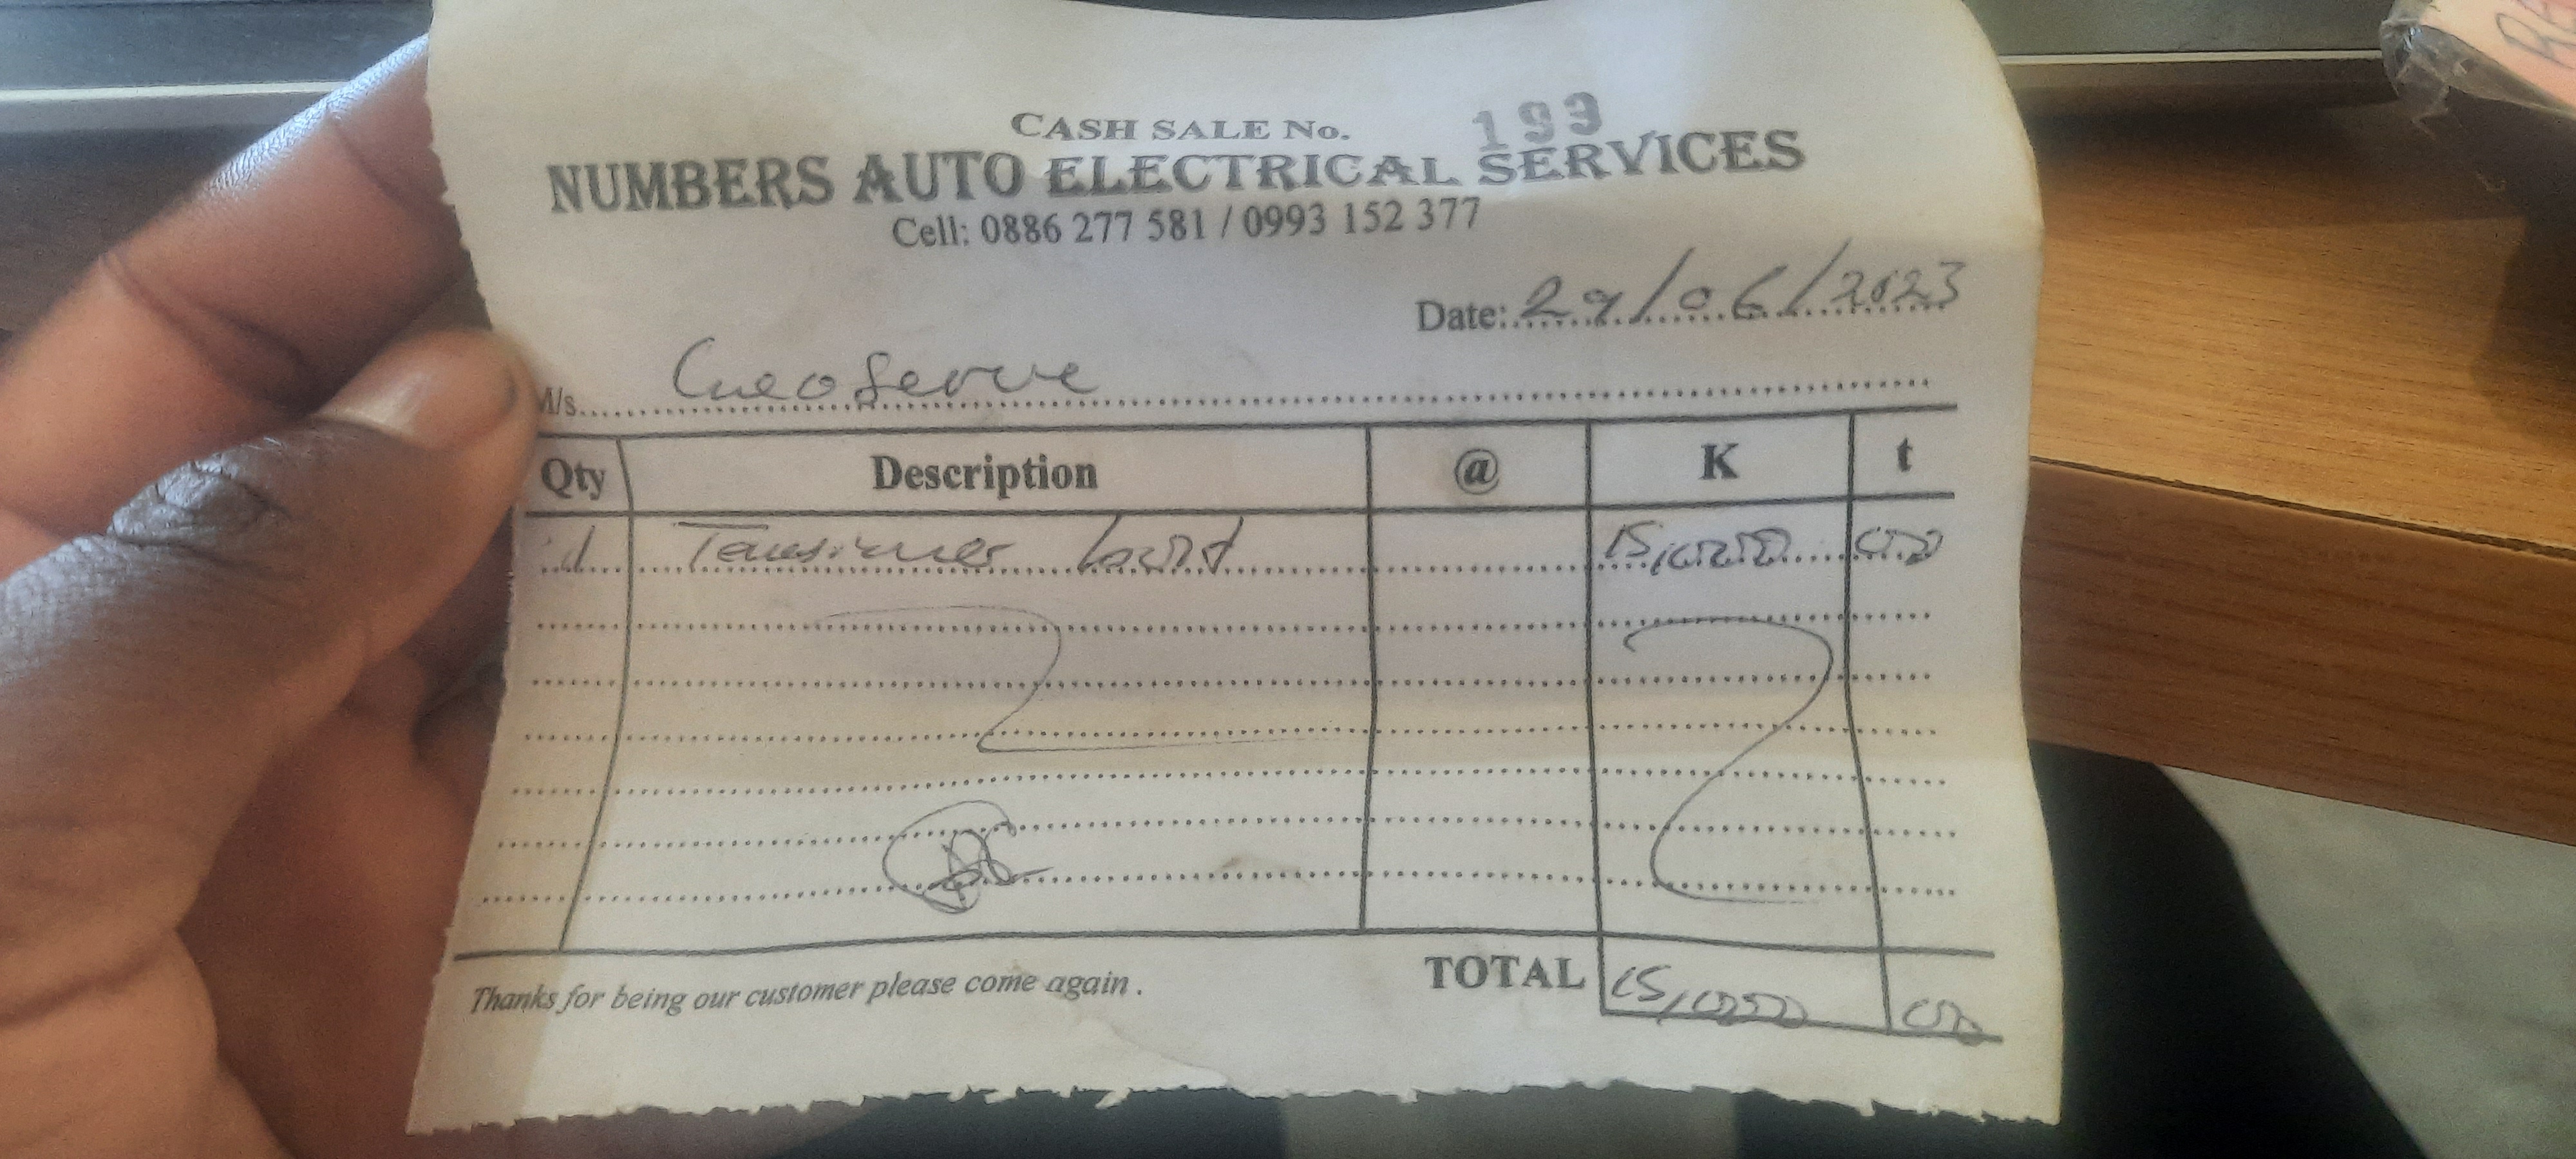 CASH SALE No. 199
NUMBERS AUTO ELECTRICAL SERVICES
Cell: 0886 277 581 / 0993 152 377
Date: 29/06/2023
M/s
Qty Description @ K t
1 Tensioner 15,000 00
TOTAL 15,000 00
Thanks for being our customer please come again.